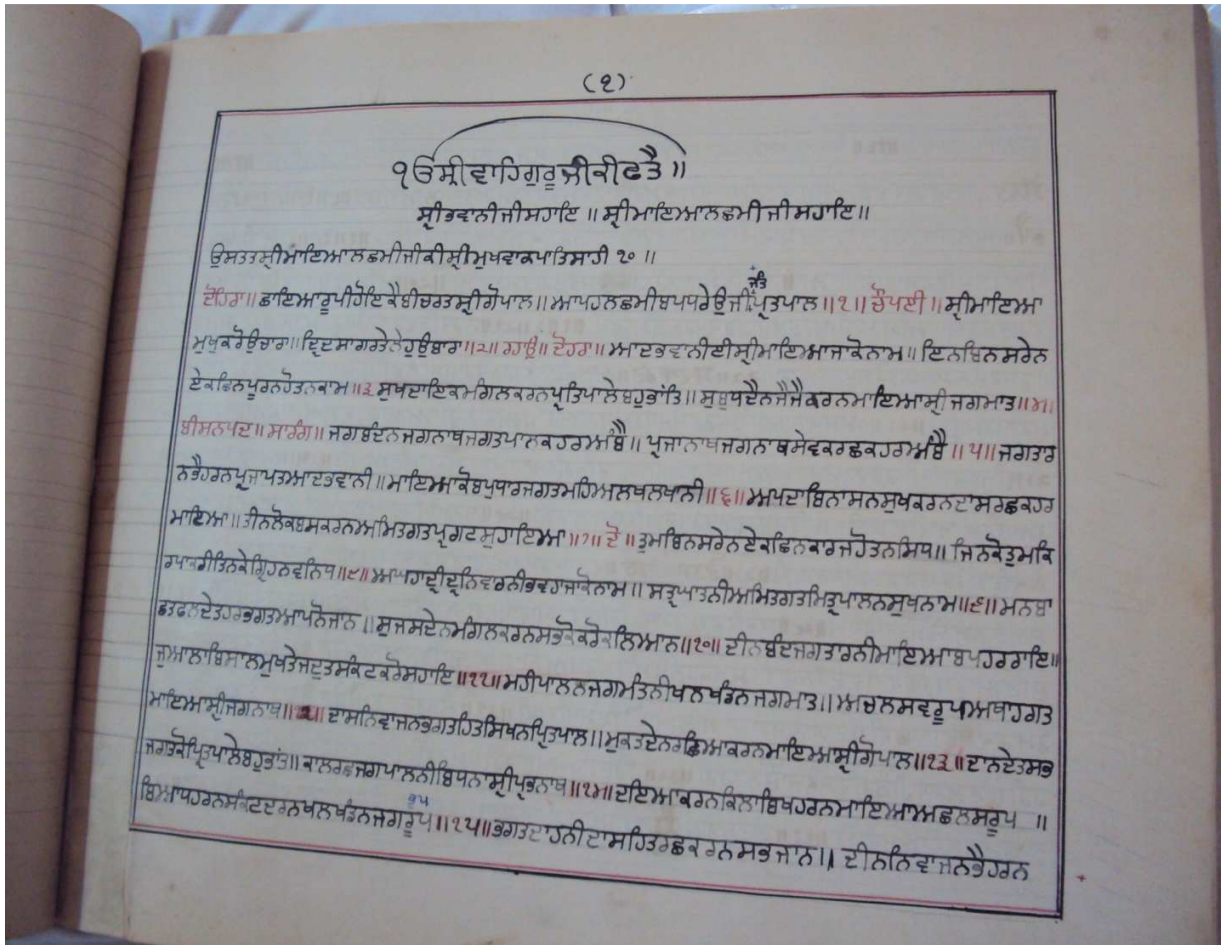 (੧)
੧ਓਸ੍ਰੀਵਾਹਿਗੁਰੂਜੀਕੀਫਤੈ॥
ਸ੍ਰੀਭਵਾਨੀਜੀਸਹਾਇ॥ਸ੍ਰੀਮਾਇਆਲਛਮੀਜੀਸਹਾਇ॥
ਉਸਤਤਸ੍ਰੀਮਾਇਆਲਛਮੀਜੀਕੀਸ੍ਰੀਮੁਖਵਾਕਪਾਤਿਸਾਹੀ ੧੦ ॥
ਜੰਤ
ਦੋਹਿਰਾ॥ਛਾਇਆਰੂਪੀਹੋਇਕੈਬੀਚਰਤਸ੍ਰੀਗੋਪਾਲ॥ਆਪਹਲਛਮੀਬਪਧਰੇਉਜੀਪ੍ਰਤਪਾਲ॥੧॥ਚੌਪਈ॥ਸ੍ਰੀਮਾਇਆ
ਮੁਖੁਕਰੋਉਚਾਰਾ॥ਦ੍ਰਿਦਸਾਗਰਤੇਲੇਹੁਉਬਾਰਾ॥੨॥ਰਹਾਉ॥ਦੋਹਰਾ॥ਆਦਭਵਾਨੀਈਸ੍ਰੀਮਾਇਆਜਾਕੋਨਾਮ॥ਇਨਬਿਨਸਰੇਨ
ਏਕਛਿਨਪੂਰਨਹੋਤਨਕਾਮ॥੩ ਸੁਖਦਾਇਕਮੰਗਲਕਰਨਪ੍ਰਤਿਪਾਲੇਬਹੁਭਾਂਤਿ॥ਸੁਬੁਧਦੈਨਜੈਜੈਕਰਨਮਾਇਆਸ੍ਰੀਜਗਮਾਤ॥੪॥
ਬੀਸਨਪਦ॥ਸਾਰੰਗ॥ਜਗਬੰਦਨਜਗਨਾਥਜਗਤਪਾਲਕਹਰਅੰਬੈ॥ਪ੍ਰਜਾਨਾਥਜਗਨਾਥਸੇਵਕਰਛਕਹਰਅੰਬੈ॥੫॥ਜਗਤਾਰ
ਨਭੈਹਰਨਪ੍ਰਜਾਪਤਆਦਭਵਾਨੀ॥ਮਾਇਆਕੋਬਪੁਧਾਰਜਗਤਮਹਿਅਲਖਲਖਾਨੀ॥੬॥ਅਪਦਾਬਿਨਾਸਨਸੁਖਕਰਨਦਾਸਰਛਕਹਰ
ਮਾਇਆ॥ਤੀਨਲੋਕਬਸਕਰਨਅਮਿਤਗਤਪ੍ਰਗਟਸੁਹਾਇਆ॥੭॥ਦੋ॥ਤੁਮਬਿਨਸਰੇਨਏਕਛਿਨਕਾਰਜਹੋਤਨਸਿਧ॥ਜਿਨਕੋਤੁਮਕਿ
ਰਪਾਕਰੀਤਿਨਕੇਗ੍ਰਿਹਨਵਨਿਧ॥੮॥ਅਪਹਾਦ੍ਰੀਦ੍ਰਨਿਵਰਨੀਭਵਹਾਜਾਕੋਨਾਮ॥ਸਤ੍ਰਘਾਤਨੀਅਮਿਤਗਤਮਿਤ੍ਰਪਾਲਨਸੁਖਨਾਮ॥੯॥ਮਨਬਾ
ਛਤਫਲਦੇਤਹਰਭਗਤਆਪਨੋਜਾਨ॥ਸੁਜਸਦੇਨਮੰਗਲਕਰਨਸਭਕੋਕਰੋਕਲਿਆਨ॥੧੦॥ਦੀਨਬੰਦਜਗਤਾਰਨੀਮਾਇਆਬਪਹਰਰਾਇ॥
ਜੁਆਲਾਬਿਸਾਲਮੁਖਤੇਜਦੁਤਸੰਕਟਕਰੋਸਹਾਇ॥੧੧॥ਮਹੀਪਾਲਨਜਗਮੰਤਨੀਖਲਖੰਡਨਜਗਮਾਤ॥ਅਚਲਸਵਰੂਪਅਥਾਹਗਤ
ਮਾਇਆਸ੍ਰੀਜਗਨਾਥ॥੧੨॥ਦਾਸਨਿਵਾਜਨਭਗਤਹਿਤਸਿਖਨਪ੍ਰਿਤਪਾਲ॥ਮੁਕਤਦੇਨਰਛਿਆਕਰਨਮਾਇਆਸ੍ਰੀਗੋਪਾਲ॥੧੩॥ਦਾਨਦੇਤਸਭ
ਜਗਤਕੋਪ੍ਰਿਤਪਾਲੇਬਹੁਭਾਂਤ॥ਕਾਲਰਛਜਗਪਾਲਨੀਬਿਧਨਾਸ੍ਰੀਪ੍ਰਭਨਾਥ॥੧੪॥ਦਇਆਕਰਨਕਿਲਾਬਿਖਹਰਨਮਾਇਆਅਛਲਸਰੂਪ॥
ਭੂਪ
ਬਿਆਧਹਰਨਸੰਕਟਦਰਨਖਲਖੰਡਨਜਗਰੂਪ॥੧੫॥ਭਗਤਦਾਹਨੀਦਾਸਹਿਤਰਛਕਰਨਸਭਜਾਨ॥ਦੀਨਨਿਵਾਜਨਭੈਹਰਨ